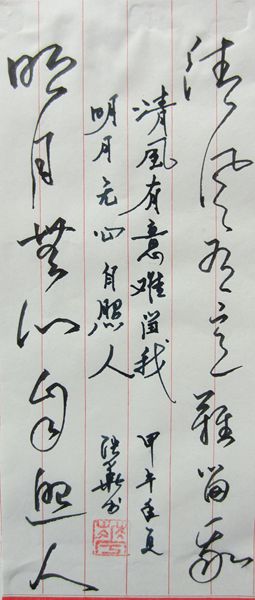 清风有意難留我
清风有意难留我
甲午年夏
明月无心自照人
明月無心自照人